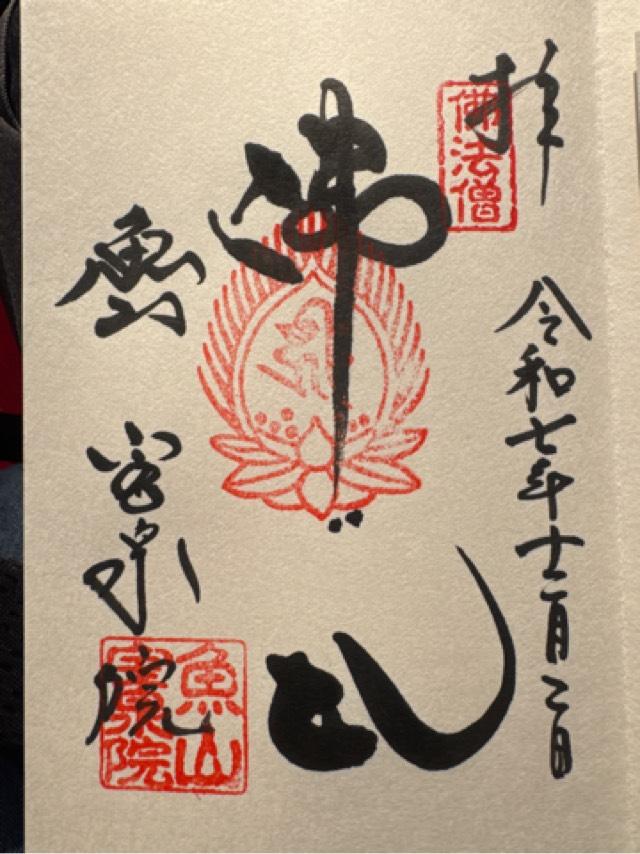 拝
佛法僧
令和七年十二月二日
佛心
魚山
宝泉院
魚山
寳泉院